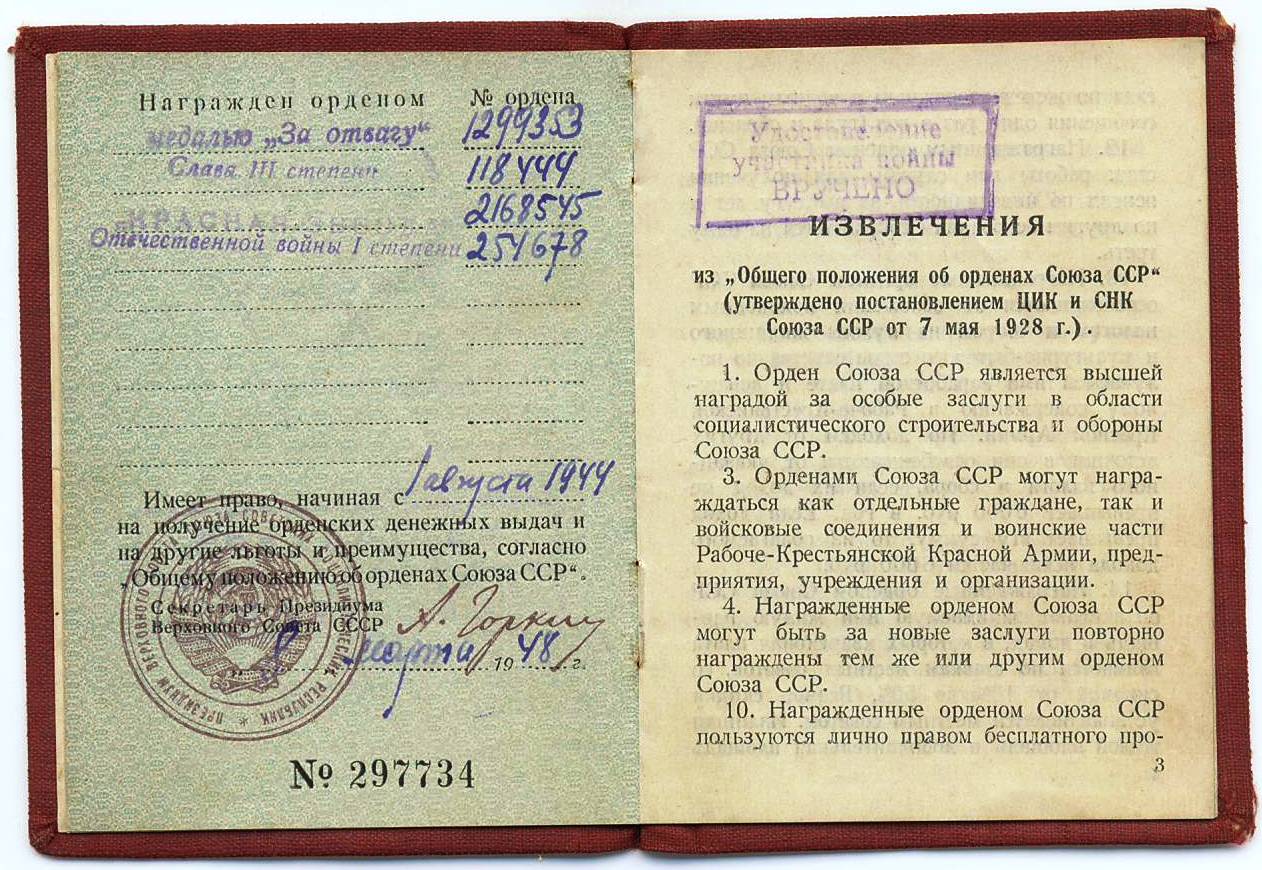 Награжден орденом № ордена
медалью „За отвагу“ 1299353
Слава III степени 118444
КРАСНАЯ 2168545
Отечественной войны I степени 254678
Имеет право, начиная с 1 августа 1944
на получение орденских денежных выдач и
на другие льготы и преимущества, согласно
„Общему положению об орденах Союза ССР“.
Секретарь Президиума
Верховного Совета СССР А. Горкин
8 марта 1948 г.
№ 297734
Удостоверение
участника войны
ВРУЧЕНО
ИЗВЛЕЧЕНИЯ
из „Общего положения об орденах Союза ССР“
(утверждено постановлением ЦИК и СНК
Союза ССР от 7 мая 1928 г.).
1. Орден Союза ССР является высшей
наградой за особые заслуги в области
социалистического строительства и обороны
Союза ССР.
3. Орденами Союза ССР могут награ-
ждаться как отдельные граждане, так и
войсковые соединения и воинские части
Рабоче-Крестьянской Красной Армии, пред-
приятия, учреждения и организации.
4. Награжденные орденом Союза ССР
могут быть за новые заслуги повторно
награждены тем же или другим орденом
Союза ССР.
10. Награжденные орденом Союза ССР
пользуются лично правом бесплатного про-
3